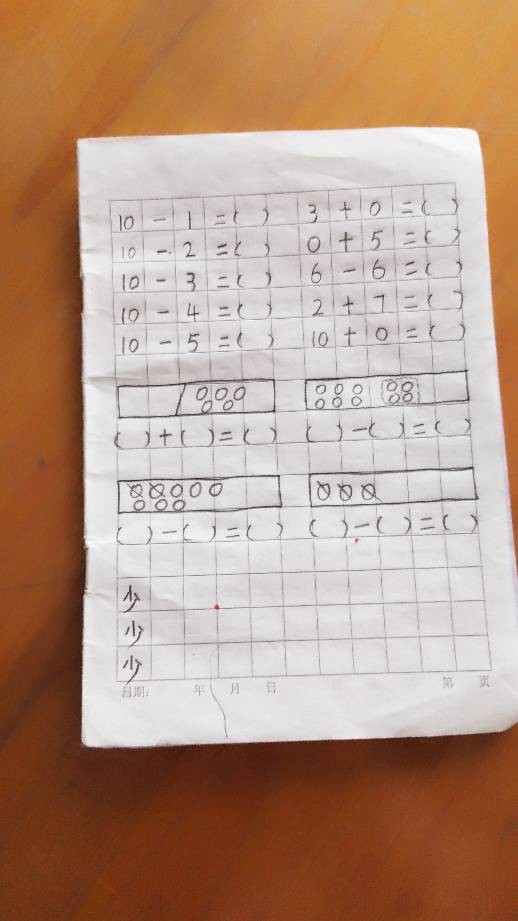 10 - 1 = ( ) 3 + 0 = ( )
10 - 2 = ( ) 0 + 5 = ( )
10 - 3 = ( ) 6 - 6 = ( )
10 - 4 = ( ) 2 + 7 = ( )
10 - 5 = ( ) 10 + 0 = ( )
( ) + ( ) = ( ) ( ) - ( ) = ( )
( ) - ( ) = ( ) ( ) - ( ) = ( )
少
少
少
日期: 年 月 日 第 页